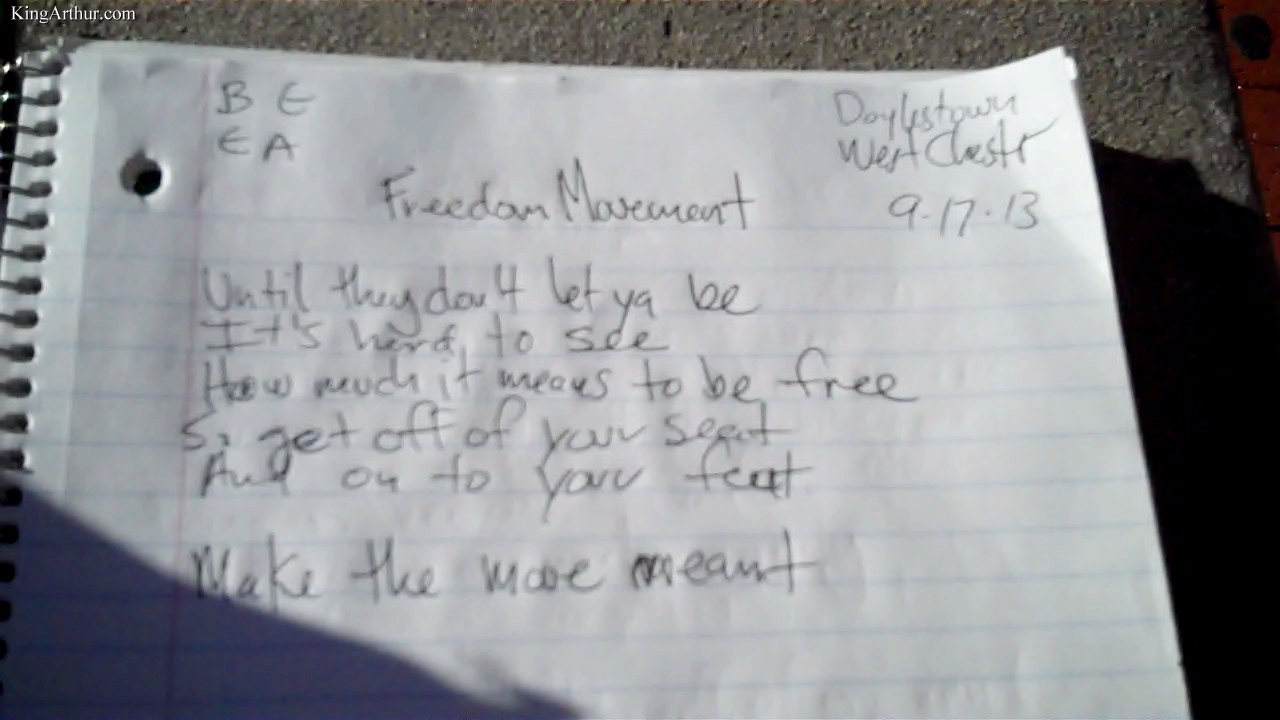 KingArthur.com
B E
E A
Doylestown
West Chestr
9-17-13
Freedom Movement
Until they don't let ya be
It's hard to see
How much it means to be free
So get off of your seat
And on to your feet
Make the move meant